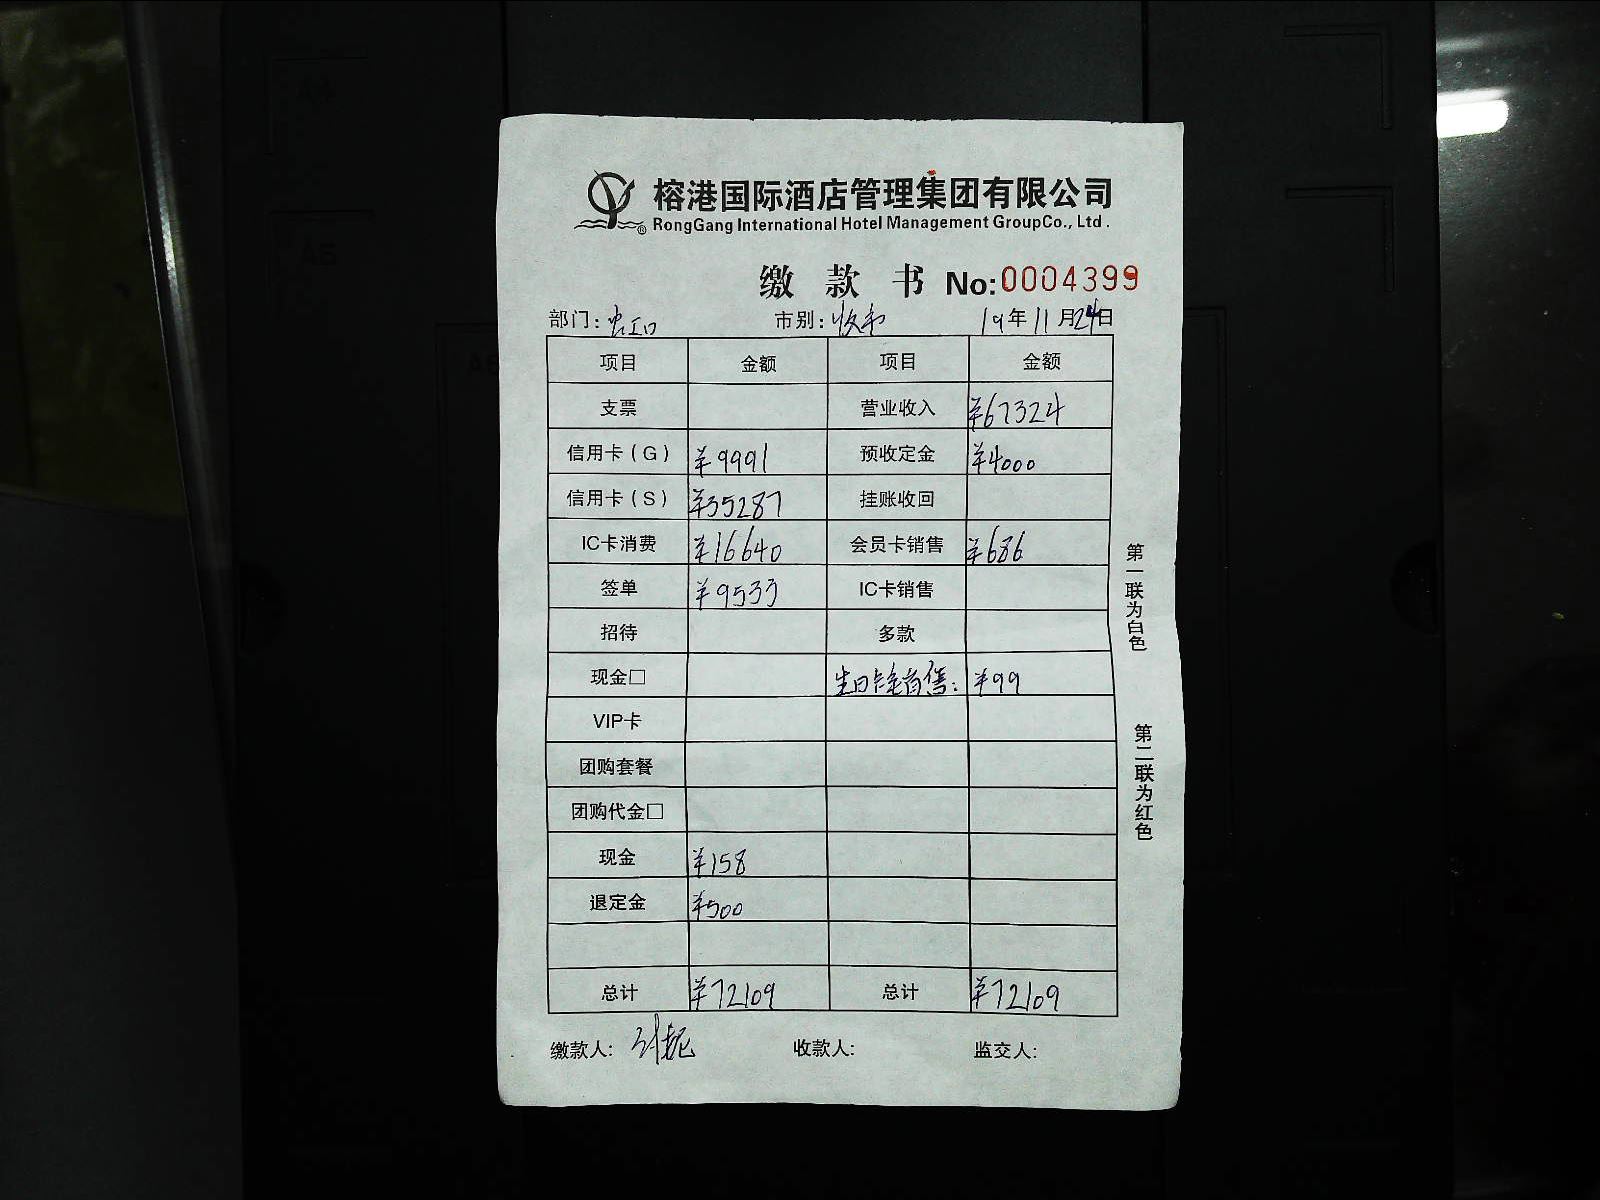 榕港国际酒店管理集团有限公司
® RongGang International Hotel Management GroupCo., Ltd.
缴 款 书 No:0004399
部门: 市别: 19年11月24日
项目 金额 项目 金额
支票 营业收入 ¥67324
信用卡(G) ¥9991 预收定金 ¥4000
信用卡(S) ¥35287 挂账收回
IC卡消费 ¥16640 会员卡销售 ¥686
签单 ¥9533 IC卡销售
招待 多款
现金□ 生日 售: ¥99
VIP卡
团购套餐
团购代金□
现金 ¥158
退定金 ¥500
总计 ¥72109 总计 ¥72109
缴款人: 收款人: 监交人:
第一联为白色
第二联为红色